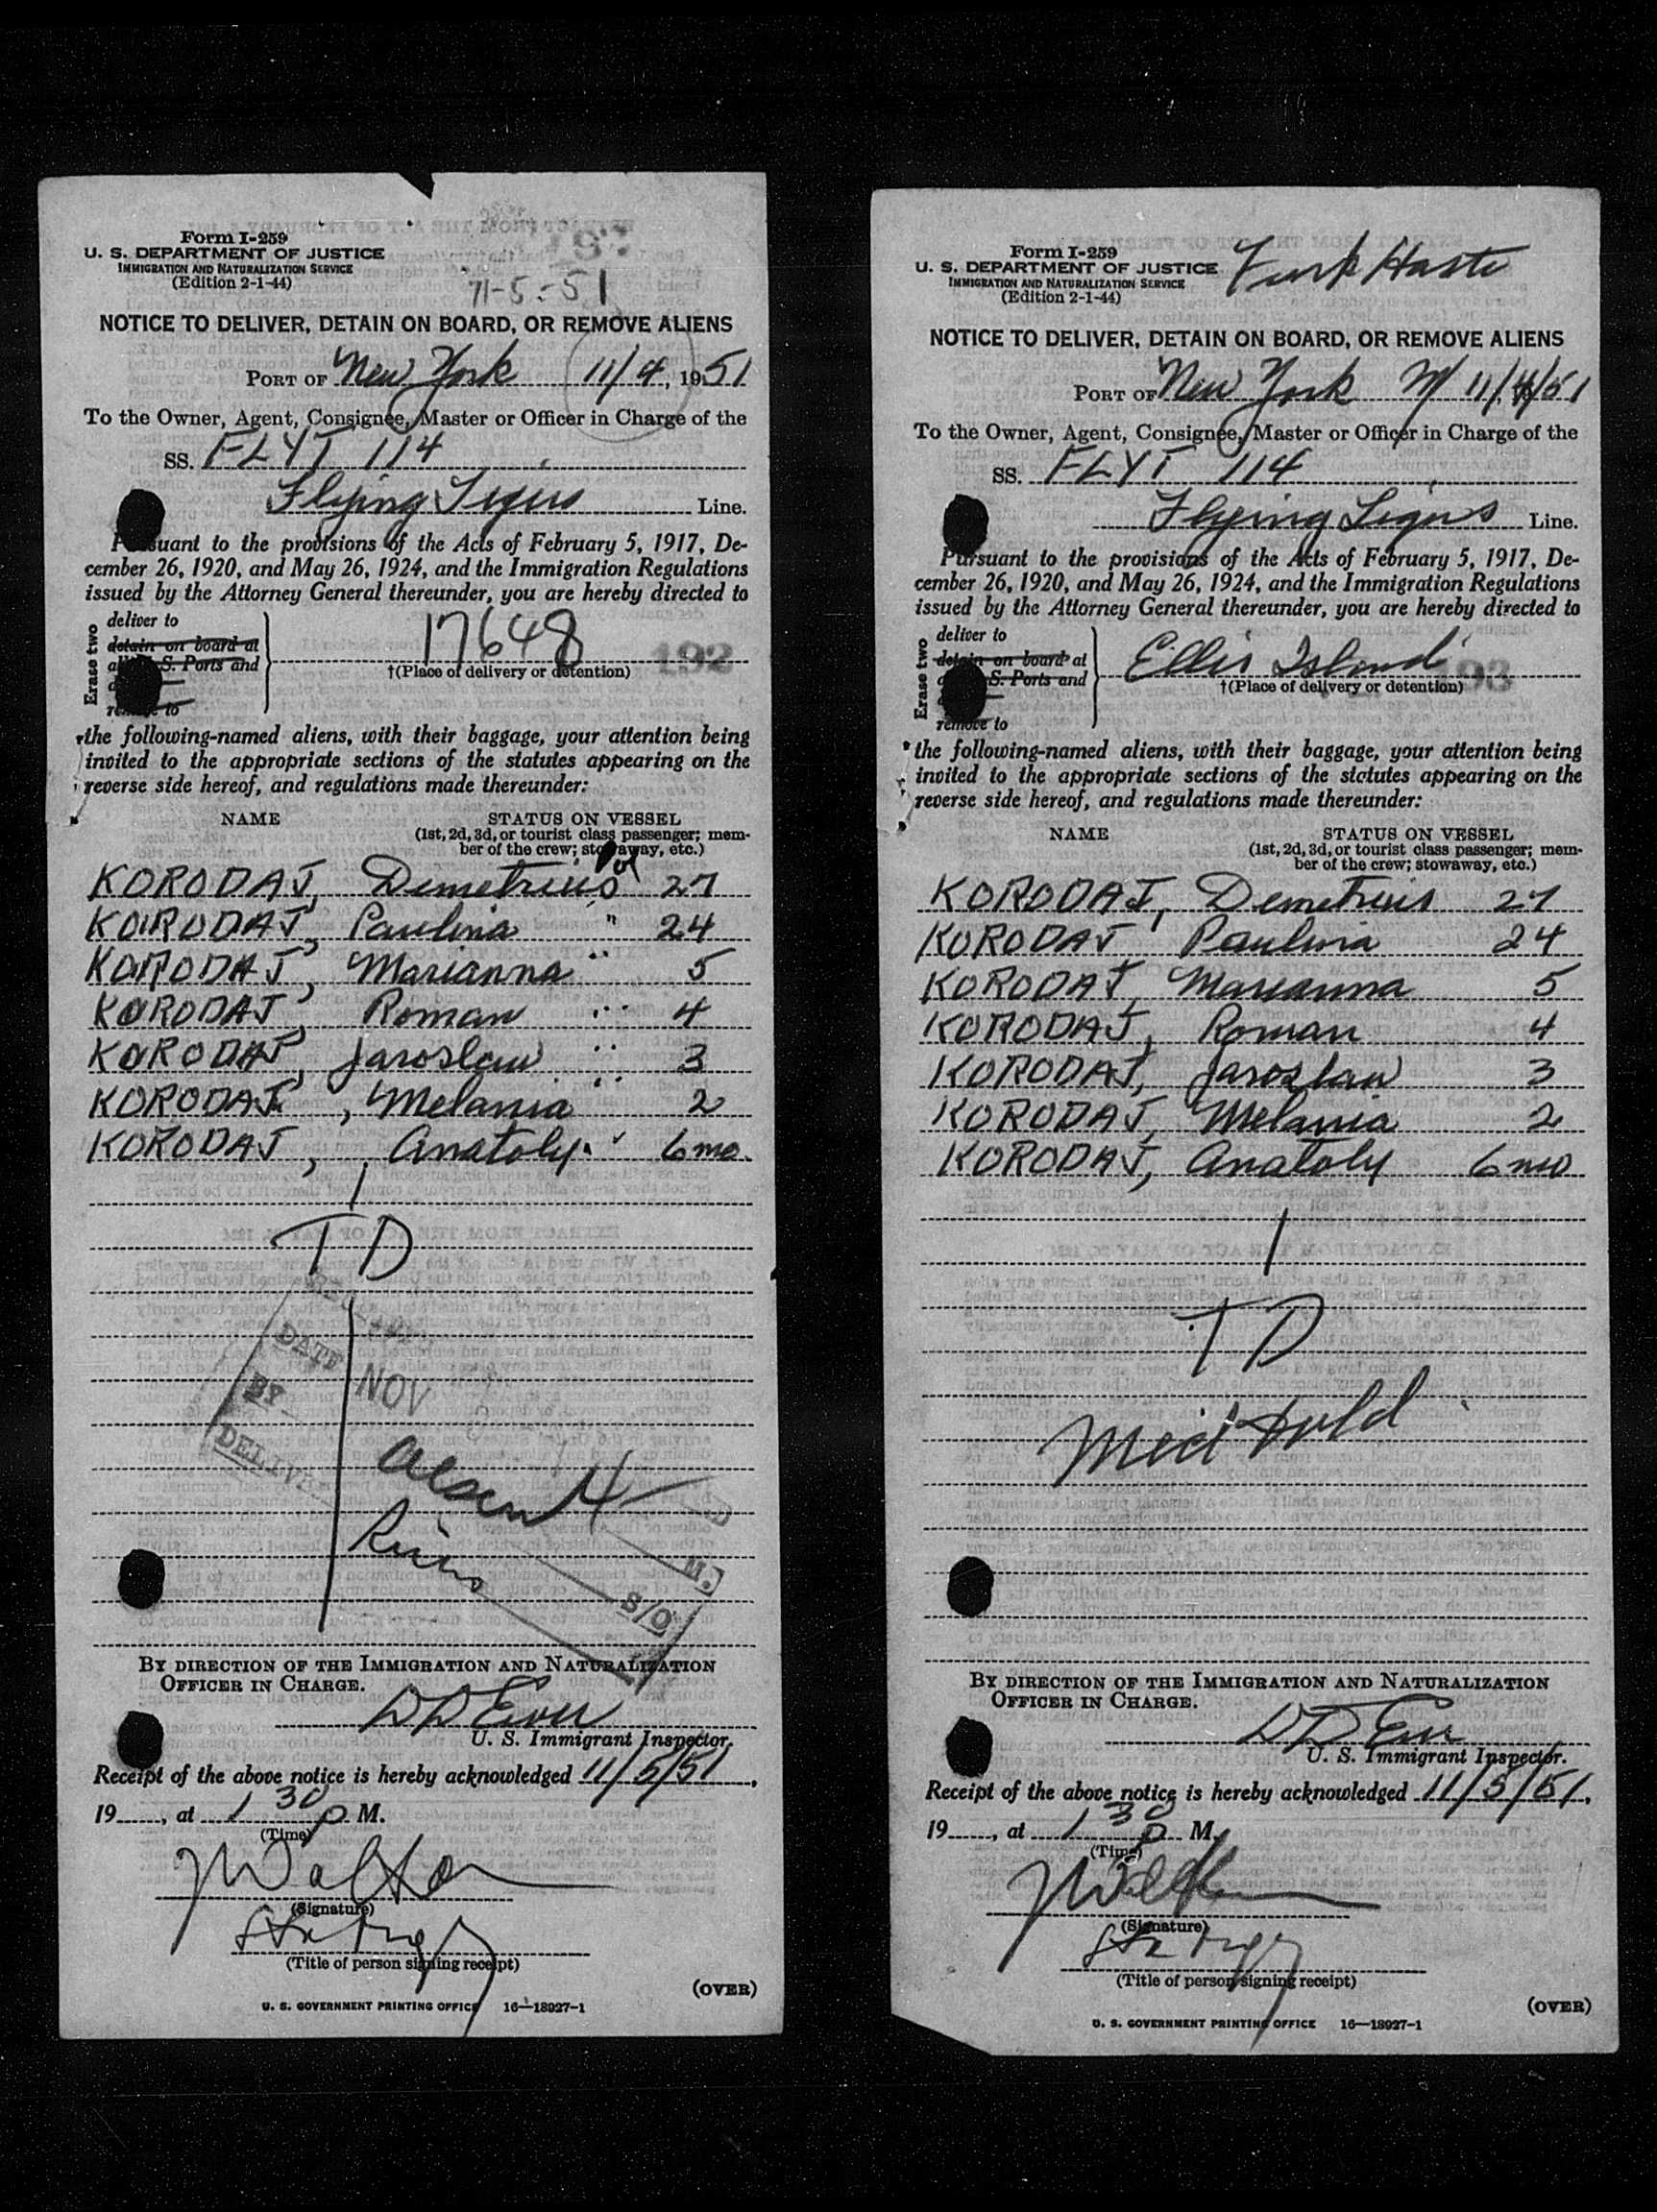 Form I-259
U. S. DEPARTMENT OF JUSTICE
IMMIGRATION AND NATURALIZATION SERVICE
(Edition 2-1-44)
11-5-51
NOTICE TO DELIVER, DETAIN ON BOARD, OR REMOVE ALIENS
PORT OF New York 11/4, 1951
To the Owner, Agent, Consignee, Master or Officer in Charge of the
SS. FLYT 114
Flying Tigers Line.
Pursuant to the provisions of the Acts of February 5, 1917, De-
cember 26, 1920, and May 26, 1924, and the Immigration Regulations
issued by the Attorney General thereunder, you are hereby directed to
Erase two
deliver to
detain on board at
S. Ports and
remove to
17648 192
†(Place of delivery or detention)
the following-named aliens, with their baggage, your attention being
invited to the appropriate sections of the statutes appearing on the
reverse side hereof, and regulations made thereunder:
NAME STATUS ON VESSEL
(1st, 2d, 3d, or tourist class passenger; mem-
ber of the crew; stowaway, etc.)
KORODAJ, Demetrius Pol 27
KORODAJ, Paulina " 24
KORODAJ, Marianna " 5
KORODAJ, Roman " 4
KORODAJ, Jaroslaw " 3
KORODAJ, Melania " 2
KORODAJ, Anatoly " 6 mo.
TD
DATE NOV
BY
DELIV
M.
S/O
BY DIRECTION OF THE IMMIGRATION AND NATURALIZATION
OFFICER IN CHARGE.
U. S. Immigrant Inspector.
Receipt of the above notice is hereby acknowledged 11/5/51,
19, at 1 30 P M.
(Time)
J Walton
(Signature)
(Title of person signing receipt)
(OVER)
U. S. GOVERNMENT PRINTING OFFICE 16—18927-1
Form I-259
U. S. DEPARTMENT OF JUSTICE
IMMIGRATION AND NATURALIZATION SERVICE
(Edition 2-1-44)
NOTICE TO DELIVER, DETAIN ON BOARD, OR REMOVE ALIENS
PORT OF New York 11/4/51
To the Owner, Agent, Consignee, Master or Officer in Charge of the
SS. FLYT 114
Flying Tigers Line.
Pursuant to the provisions of the Acts of February 5, 1917, De-
cember 26, 1920, and May 26, 1924, and the Immigration Regulations
issued by the Attorney General thereunder, you are hereby directed to
Erase two
deliver to
detain on board at
S. Ports and
remove to
Ellis Island 193
†(Place of delivery or detention)
the following-named aliens, with their baggage, your attention being
invited to the appropriate sections of the statutes appearing on the
reverse side hereof, and regulations made thereunder:
NAME STATUS ON VESSEL
(1st, 2d, 3d, or tourist class passenger; mem-
ber of the crew; stowaway, etc.)
KORODAJ, Demetrius 27
KORODAJ Paulina 24
KORODAJ, Marianna 5
KORODAJ, Roman 4
KORODAJ, Jaroslaw 3
KORODAJ, Melania 2
KORODAJ, Anatoly 6 mo
TD
Med Hold
BY DIRECTION OF THE IMMIGRATION AND NATURALIZATION
OFFICER IN CHARGE.
U. S. Immigrant Inspector.
Receipt of the above notice is hereby acknowledged 11/5/51,
19, at 1 30 P M.
(Time)
J Walton
(Signature)
(Title of person signing receipt)
(OVER)
U. S. GOVERNMENT PRINTING OFFICE 16—18927-1